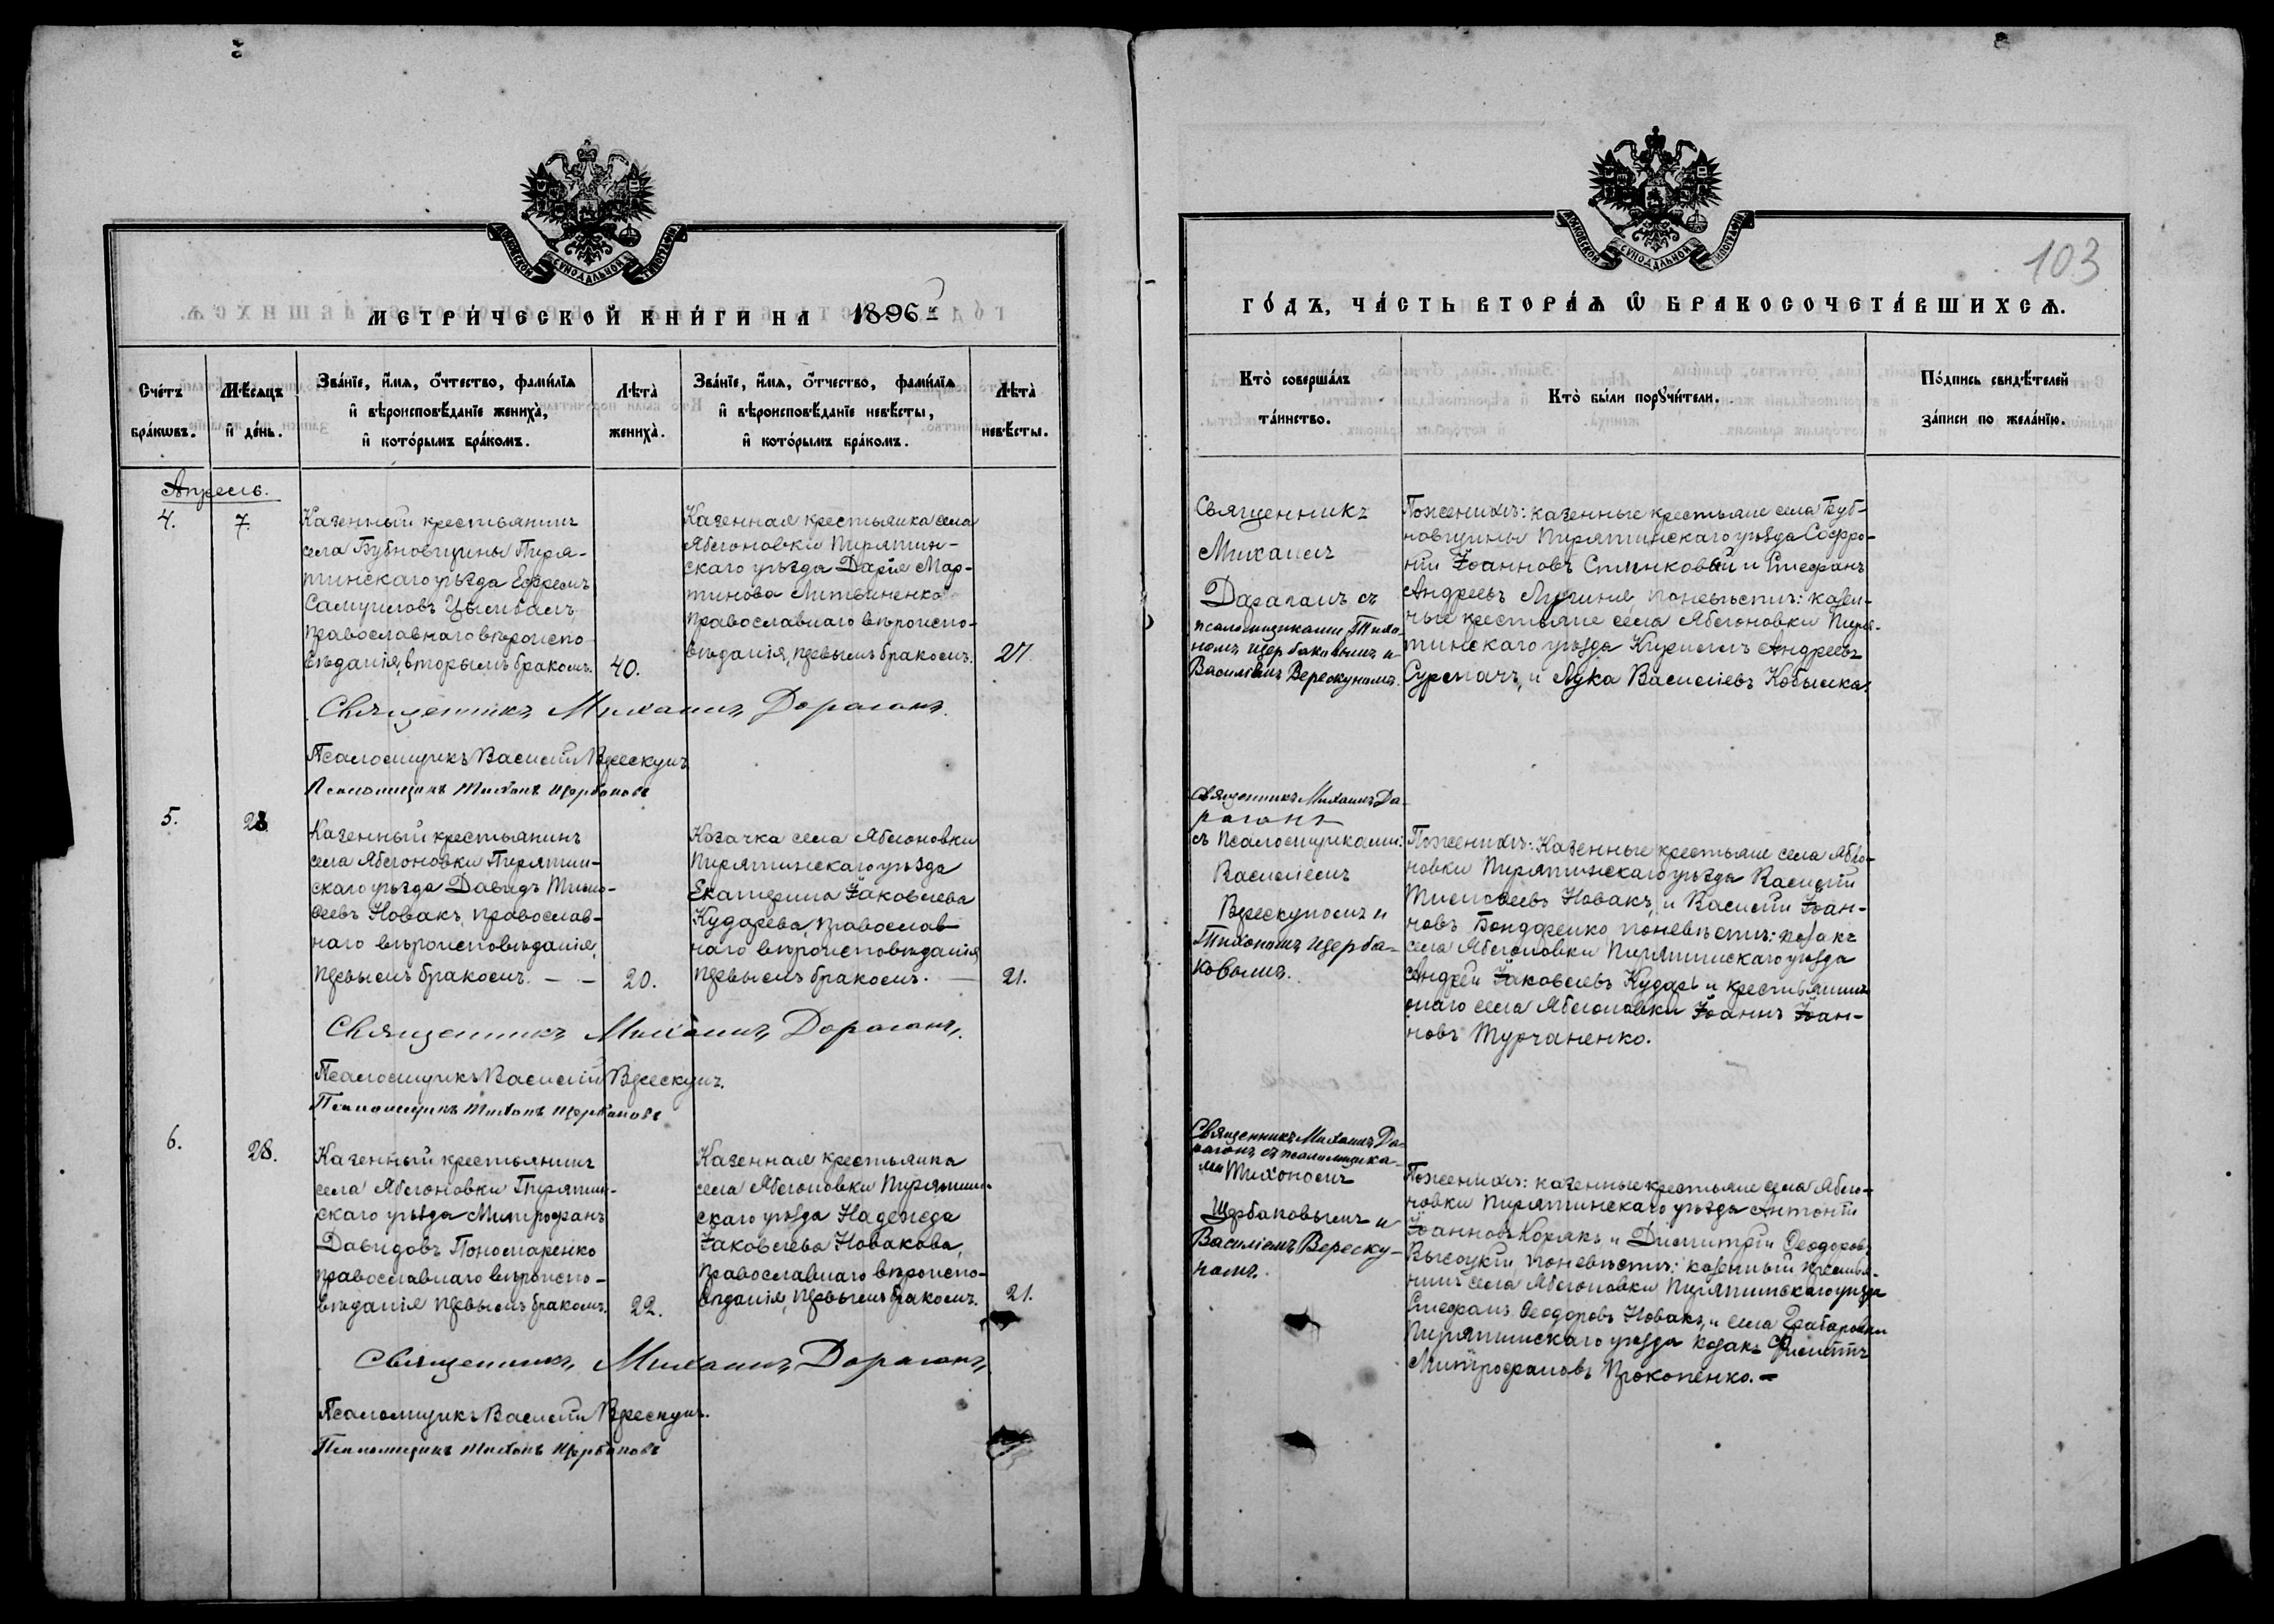 МОСКОВСКОЙ СѴНОДАЛЬНОЙ ТИПОГРАФІИ
МЕТРИ́ЧЕСКОЙ КНИ́ГИ НА 1896 г
Сче́тъ бра́кѡвъ.
Мѣ́сяцъ и҆ де́нь.
Зва́нїе, и҆́мя, ѻ҆́тчество, фами́лїя и҆ вѣроисповѣ́данїе жениха̀, и҆ кото́рымъ бра́комъ.
Лѣта̀ жениха̀.
Зва́нїе, и҆́мя, ѻ҆́тчество, фами́лїя и҆ вѣроисповѣ́данїе невѣ́сты, и҆ кото́рымъ бра́комъ.
Лѣта̀ невѣ́сты.
Апрель.
4.
7.
Казенный крестьянинъ
села Бубновщины Пиря-
тинскаго уѣзда Ефремъ
Самуиловъ Цымбалъ,
православнаго вѣроиспо
вѣданія, вторымъ бракомъ.
40.
Казенная крестьянка села
Яблоновки Пирятин-
скаго уѣзда Дарія Мар-
тинова Литвиненко
православнаго вѣроиспо-
вѣданія, первымъ бракомъ.
27.
Священникъ Михаилъ Дараганъ.
Псаломщикъ Василій Верескунъ
Псаломщикъ Тихонъ Щербаковъ
5.
28
Казенный крестьянинъ
села Яблоновки Пирятин-
скаго уѣзда Давидъ Тимо-
ѳеевъ Новакъ, православ-
наго вѣроисповѣданія,
первымъ бракомъ. — —
20.
Козачка села Яблоновки
Пирятинскаго уѣзда
Екатерина Іаковлева
Кударева, православ-
наго вѣроисповѣданія
первымъ бракомъ. —
21.
Священникъ Михаилъ Дараганъ.
Псаломщикъ Василій Верескунъ.
Псаломщикъ Тихонъ Щербаковъ
6.
28.
Казенный крестьянинъ
села Яблоновки Пирятин-
скаго уѣзда Митрофанъ
Давидовъ Пономаренко
православнаго вѣроиспо-
вѣданія первымъ бракомъ.
22.
Казенная крестьянка
села Яблоновки Пирятин-
скаго уѣзда Надежда
Іаковлева Новакова,
православнаго вѣроиспо-
вѣданія, первымъ бракомъ.
21.
Священникъ Михаилъ Дараганъ,
Псаломщикъ Василій Верескунъ.
Псаломщикъ Тихонъ Щербаковъ
МОСКОВСКОЙ СѴНОДАЛЬНОЙ ТИПОГРАФІИ
103
ГО́ДЪ, ЧА́СТЬ ВТОРА́Я Ѽ БРАКОСОЧЕТА́ВШИХСЯ.
Кто̀ соверша́лъ та́инство.
Кто̀ бы́ли порꙋчи́тели.
По́дпись свидѣ́телей за́писи по жела́нїю.
Священникъ
Михаилъ
Дараганъ съ
псаломщиками Тихо-
номъ Щербаковымъ и
Василіемъ Верескуномъ.
По женихѣ: казенные крестьяне села Буб-
новщины Пирятинскаго уѣзда Софро-
ній Іоанновъ и Стефанъ
Андреевъ по невѣстѣ: казен-
ные крестьяне села Яблоновки Пиря-
тинскаго уѣзда Кириллъ Андреевъ
Сурмачъ, и Лука Василіевъ Кобылка.
Священникъ Михаилъ Да-
раганъ
съ псаломщиками:
Василіемъ
Верескуномъ и
Тихономъ Щерба-
ковымъ.
По женихѣ: Казенные крестьяне села Ябло-
новки Пирятинскаго уѣзда Василій
Тимоѳеевъ Новакъ, и Василій Іоан-
новъ Бондаренко по невѣстѣ: козакъ
села Яблоновки Пирятинскаго уѣзда
Андрей Іаковлевъ Кударь и крестьянинъ
онаго села Яблоновки Іоаннъ Іоан-
новъ Турчаненко.
Священникъ Михаилъ Да-
раганъ съ псаломщика-
ми Тихономъ
Щербаковымъ и
Василіемъ Вереску-
номъ.
По женихѣ: казенные крестьяне села Ябло-
новки Пирятинскаго уѣзда Антоній
Іоанновъ Корякъ, и Димитрій Ѳеодоровъ
Высоцкій, по невѣстѣ: казенный крестья-
нинъ села Яблоновки Пирятинскаго уѣзда
Стефанъ Ѳеодоровъ Новакъ, и села Грабаровки
Пирятинскаго уѣзда козакъ Филиппъ
Митрофановъ Прокопенко. —